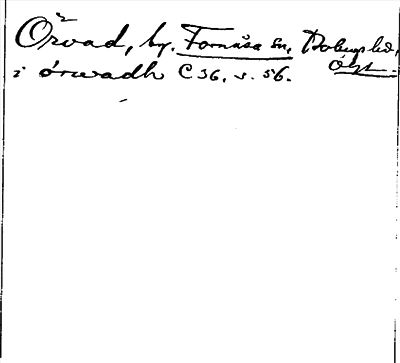 Örvad, by. Fornåsa sn, Bobergs hd,
Ögl.
i órwadh C 36, s. 56.